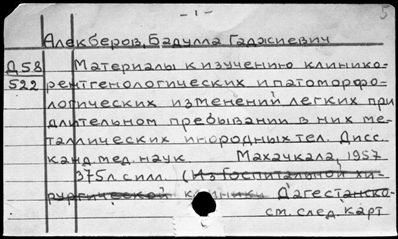 - 1 -
5
Алекберов, Бадулла Гаджиевич
Д58 Материалы к изучению клинико-
522 рентгенологических и патоморфо-
логических изменений легких при
длительном пребывании в них ме-
таллических инородных тел. Дисс.
канд. мед. наук Махачкала, 1957
375 л. с илл. (Из Госпитальной хи-
рургической клиники Дагестанско-
см. след. карт